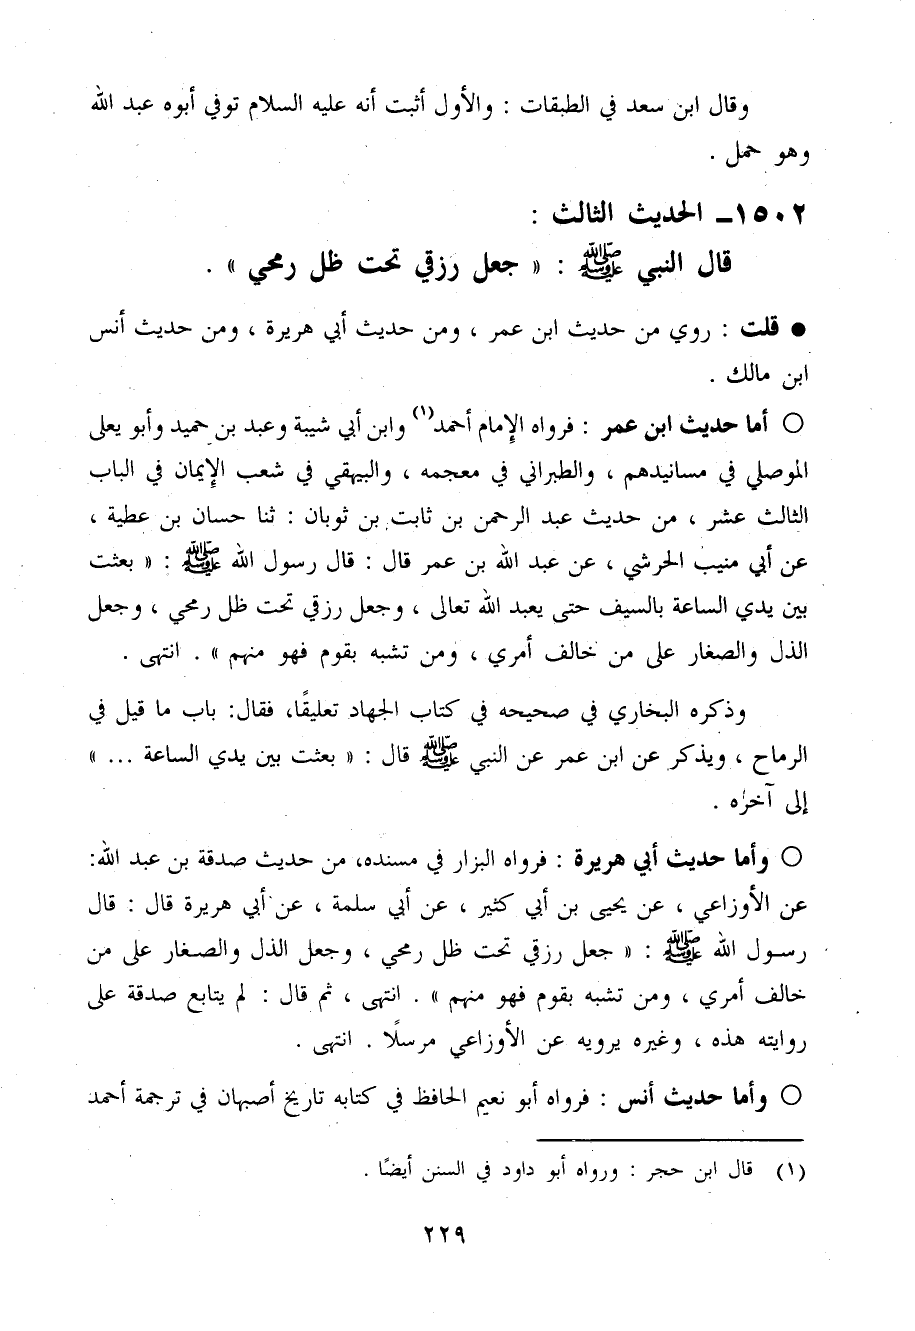 وقال ابن سعد في الطبقات : والأول أثبت أنه عليه السلام توفي أبوه عبد الله
وهو حمل .
١٥٠٢ـ الحديث الثالث :
قال النبي ﷺ : « جعل رزقي تحت ظل رمحي » .
● قلت : روي من حديث ابن عمر ، ومن حديث أبي هريرة ، ومن حديث أنس
ابن مالك .
○ أما حديث ابن عمر : فرواه الإمام أحمد(١) وابن أبي شيبة وعبد بن حميد وأبو يعلى
الموصلي في مسانيدهم ، والطبراني في معجمه ، والبيهقي في شعب الإيمان في الباب
الثالث عشر ، من حديث عبد الرحمن بن ثابت بن ثوبان : ثنا حسان بن عطية ،
عن أبي منيب الحرشي ، عن عبد الله بن عمر قال : قال رسول الله ﷺ : « بعثت
بين يدي الساعة بالسيف حتى يعبد الله تعالى ، وجعل رزقي تحت ظل رمحي ، وجعل
الذل والصغار على من خالف أمري ، ومن تشبه بقوم فهو منهم » . انتهى .
وذكره البخاري في صحيحه في كتاب الجهاد تعليقًا، فقال: باب ما قيل في
الرماح ، ويذكر عن ابن عمر عن النبي ﷺ قال : « بعثت بين يدي الساعة ... »
إلى آخره .
○ وأما حديث أبي هريرة : فرواه البزار في مسنده، من حديث صدقة بن عبد الله:
عن الأوزاعي ، عن يحيى بن أبي كثير ، عن أبي سلمة ، عن أبي هريرة قال : قال
رسول الله ﷺ : « جعل رزقي تحت ظل رمحي ، وجعل الذل والصغار على من
خالف أمري ، ومن تشبه بقوم فهو منهم » . انتهى ، ثم قال : لم يتابع صدقة على
روايته هذه ، وغيره يرويه عن الأوزاعي مرسلًا . انتهى .
○ وأما حديث أنس : فرواه أبو نعيم الحافظ في كتابه تاريخ أصبهان في ترجمة أحمد
(١) قال ابن حجر : ورواه أبو داود في السنن أيضًا .
٢٢٩